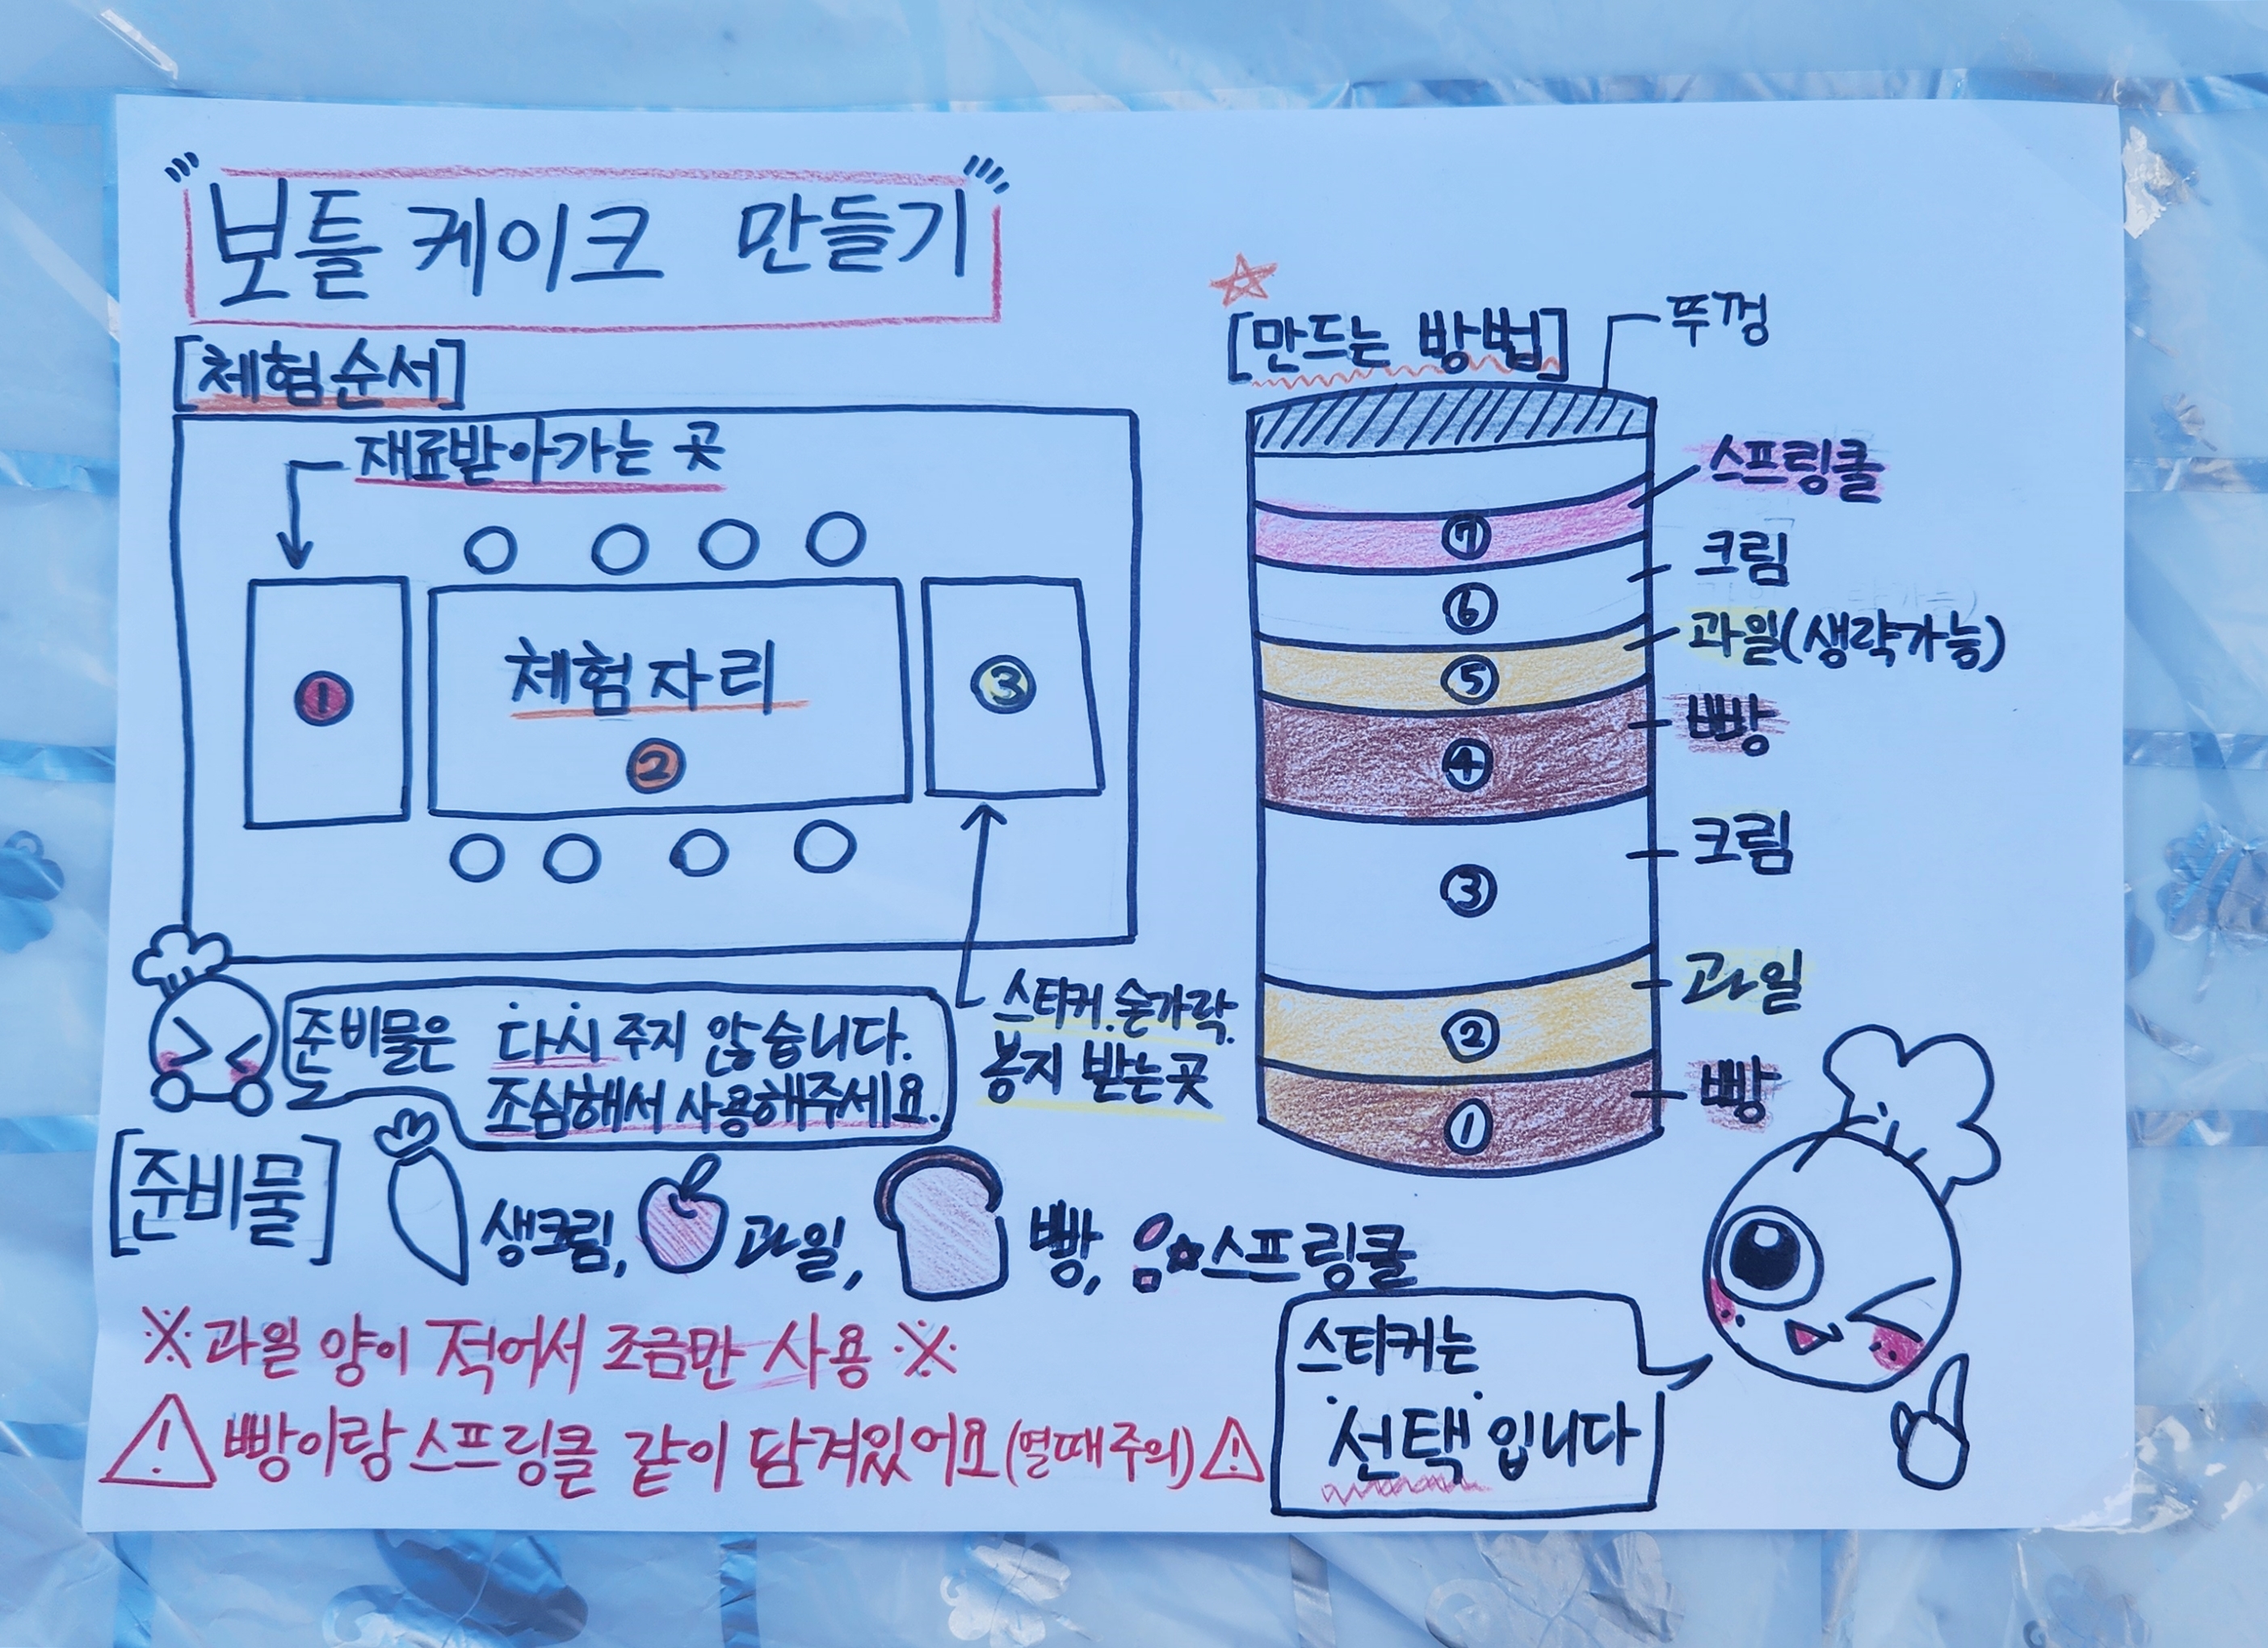 보틀 케이크 만들기
[체험순서]
재료받아가는 곳
①
체험자리
②
③
스티커. 숟가락.
봉지 받는곳
준비물은 다시 주지 않습니다.
조심해서 사용해주세요.
[준비물]
생크림, 과일, 빵, 스프링쿨
※과일 양이 적어서 조금만 사용※
⚠빵이랑 스프링클 같이 담겨있어요(열때주의)⚠
☆
[만드는 방법]
뚜껑
스프링쿨
⑦
크림
⑥
과일(생략가능)
⑤
빵
④
크림
③
과일
②
빵
①
스티커는
선택입니다